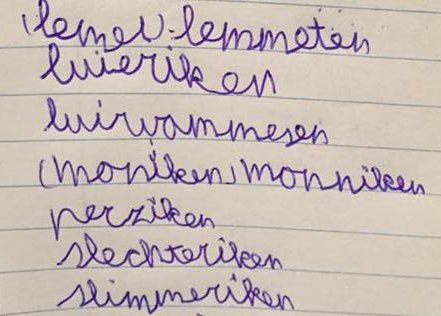 (lemel) lemmeten
luieriken
luiwammesen
(moniken) monniken
perziken
slechteriken
slimmeriken